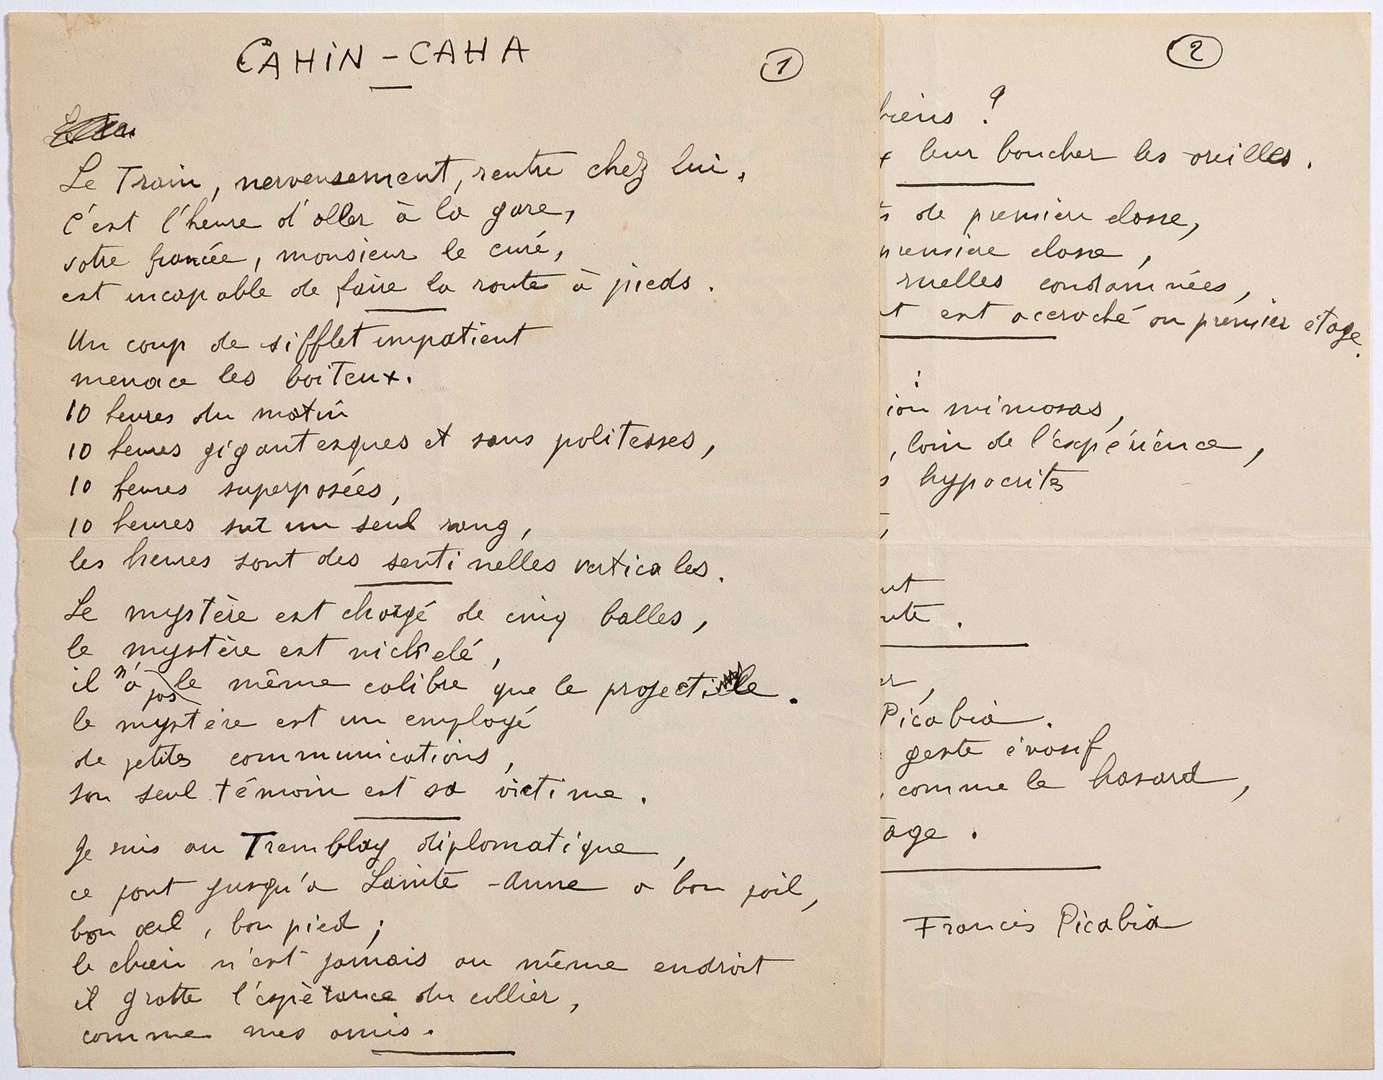 CAHIN-CAHA
1
Le Train, nerveusement, rentre chez lui.
C'est l'heure d'aller à la gare,
votre fiancée, monsieur le curé,
est incapable de faire la route à pieds.
Un coup de sifflet impatient
menace les boiteux.
10 heures du matin
10 heures gigantesques et sans politesses,
10 heures superposées,
10 heures sur un seul rang,
les heures sont des sentinelles verticales.
Le mystère est chargé de cinq balles,
le mystère est nickelé,
il n'a pas le même calibre que le projectile.
le mystère est un employé
de petites communications,
son seul témoin est sa victime.
Je suis au Tremblay diplomatique,
ce pont jusqu'à Sainte-Anne a bon poil,
bon œil, bon pied;
le chien n'est jamais au même endroit
il gratte l'espérance du collier,
comme mes amis.
2
biens ?
leur boucher les oreilles.
de première classe,
première classe,
ruelles condamnées,
est accroché au premier étage.
mimosas,
, loin de l'expérience,
hypocrites
Picabia.
geste évasif
, comme le hasard,
Francis Picabia